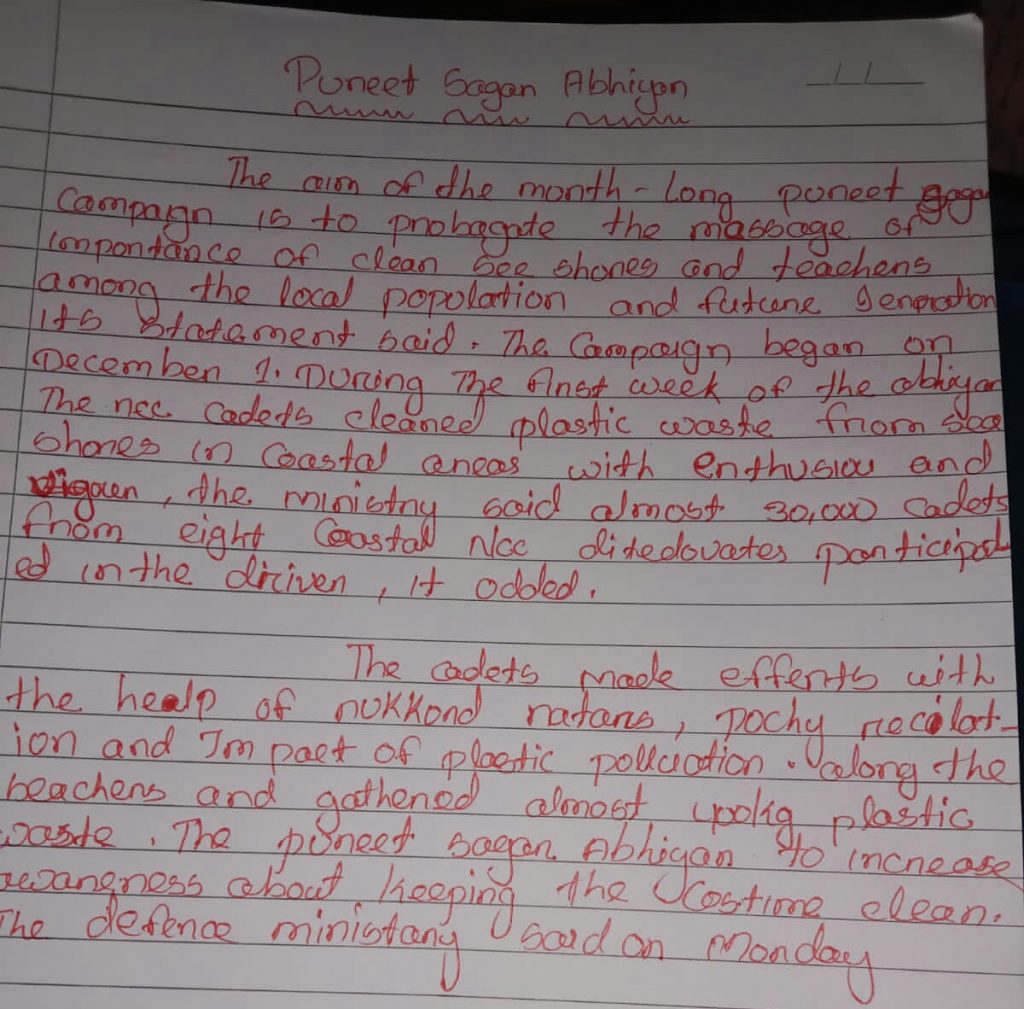 Puneet Sagan Abhiyan
The aim of the month - long puneet
Campaign is to probagate the massage of
impontance of clean see shones and teachens
among the local population and futune generation
its statement said. The Campaign began on
December 1. During The finst week of the abhiyan
The ncc cadets cleaned plastic waste fnom
shones in Coastal aneas with and
the ministny said almost 30,000 cadets
fnom eight Coastal Ncc
ed in the , it added.
The cadets made effents with
the help of nukkond natans,
ion and Impact of plastic . along the
beachens and gathened almost plastic
waste. The puneet sagan Abhiyan to incnease
about keeping the clean.
The defence said on Monday